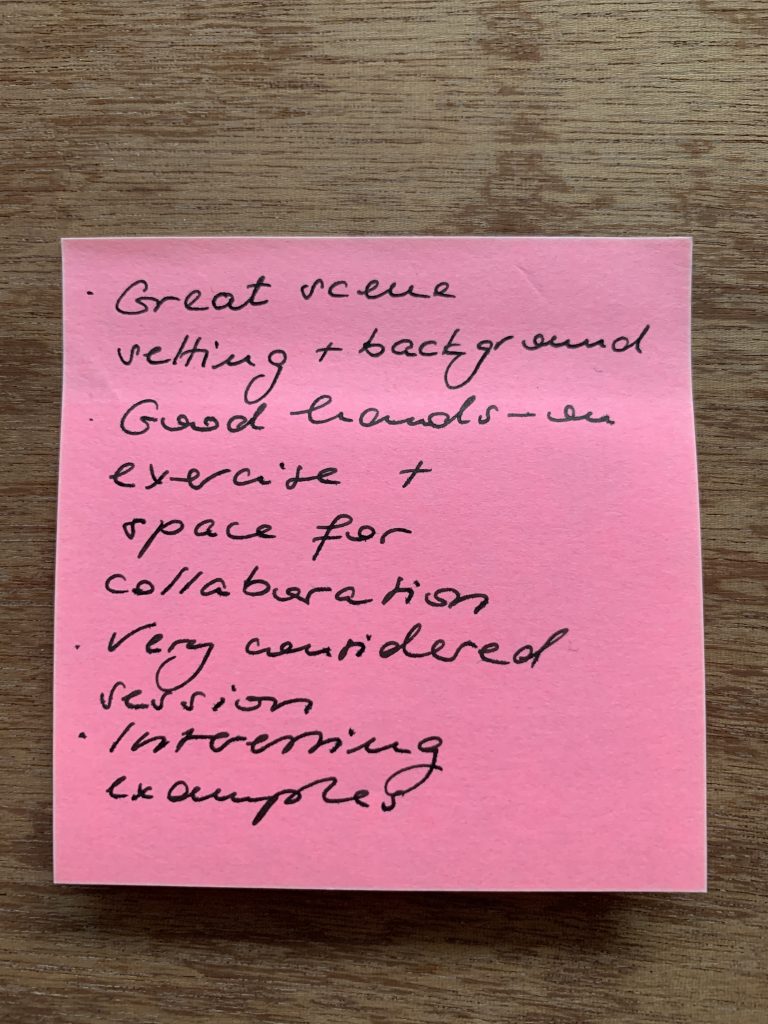 · Great scene
setting + background
· Good hands-on
exercise +
space for
collaboration
· Very considered
session
· Interesting
examples